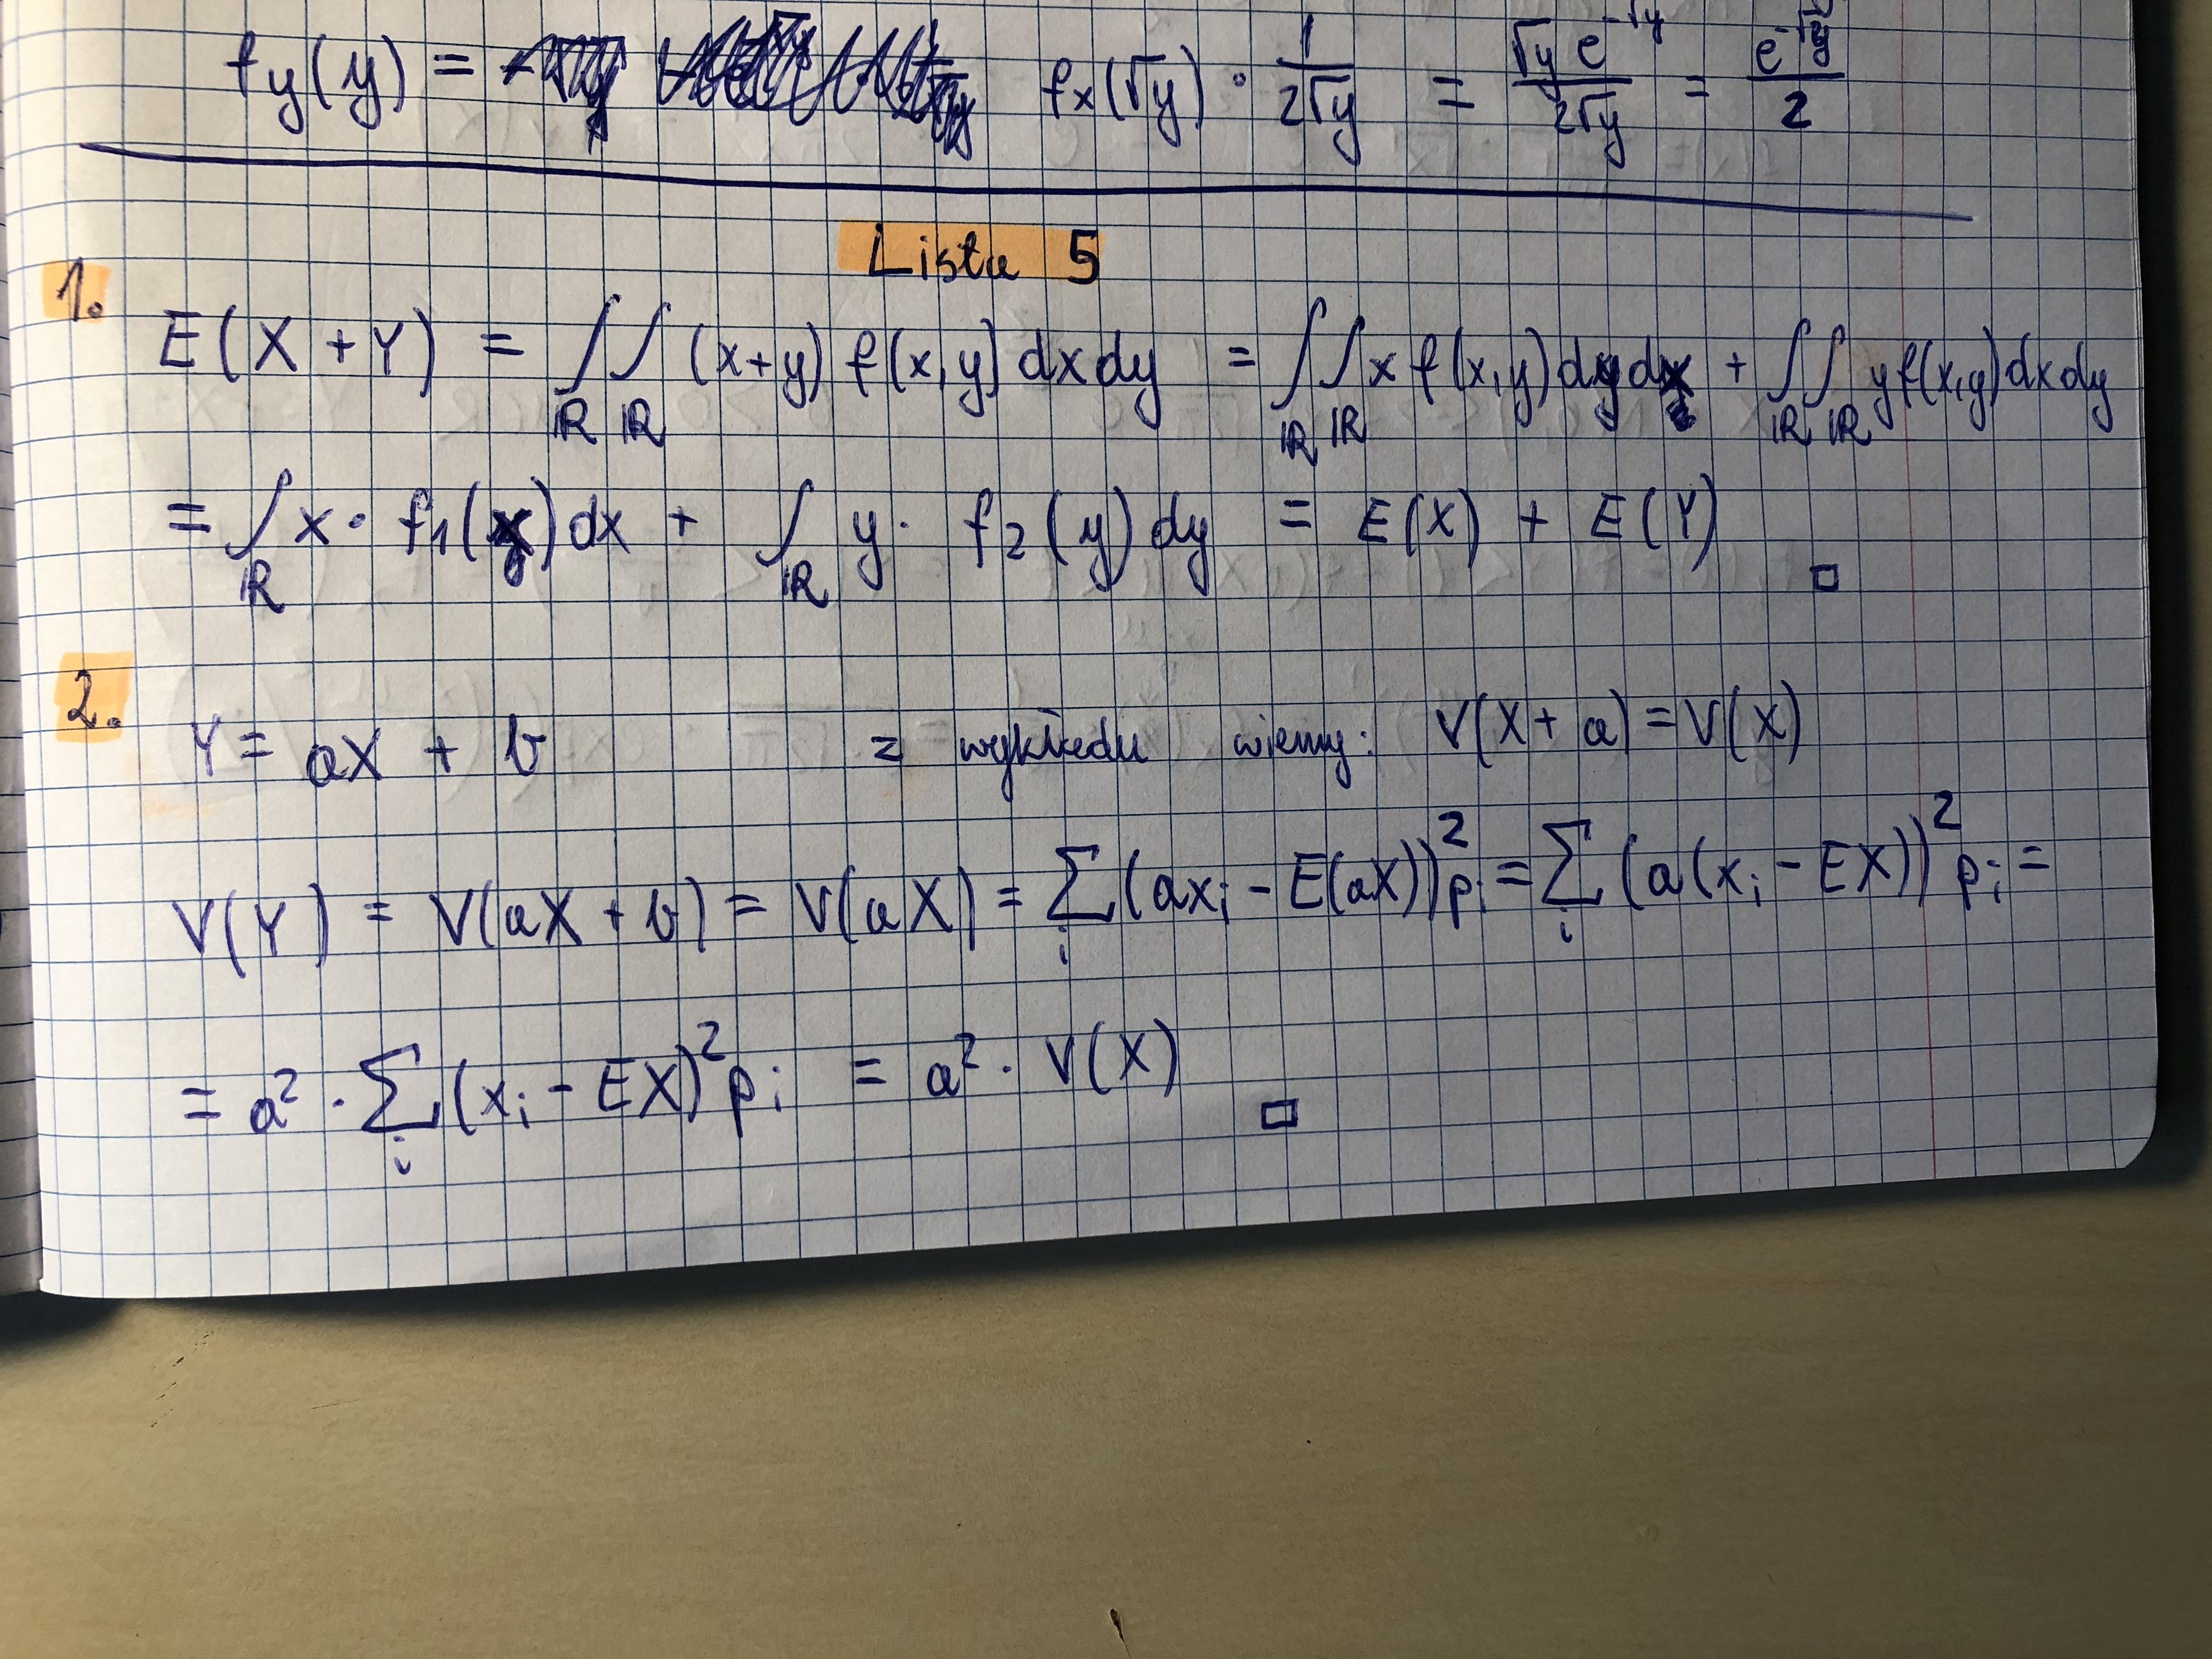 f_y(y) = f_x(√y) · 1/(2√y) = (√y e^(-√y))/(2√y) = e^(-√y)/2
Lista 5
1.
E(X + Y) = ∫_ℝ ∫_ℝ (x+y) f(x,y) dx dy = ∫_ℝ ∫_ℝ x f(x,y) dy dx + ∫_ℝ ∫_ℝ y f(x,y) dx dy
= ∫_ℝ x · f₁(x) dx + ∫_ℝ y · f₂(y) dy = E(X) + E(Y) □
2.
Y = aX + b z wykładu wiemy: V(X + a) = V(X)
V(Y) = V(aX + b) = V(aX) = Σ_i (ax_i - E(aX))² p_i = Σ_i (a(x_i - EX))² p_i =
= a² · Σ_i (x_i - EX)² p_i = a² · V(X) □